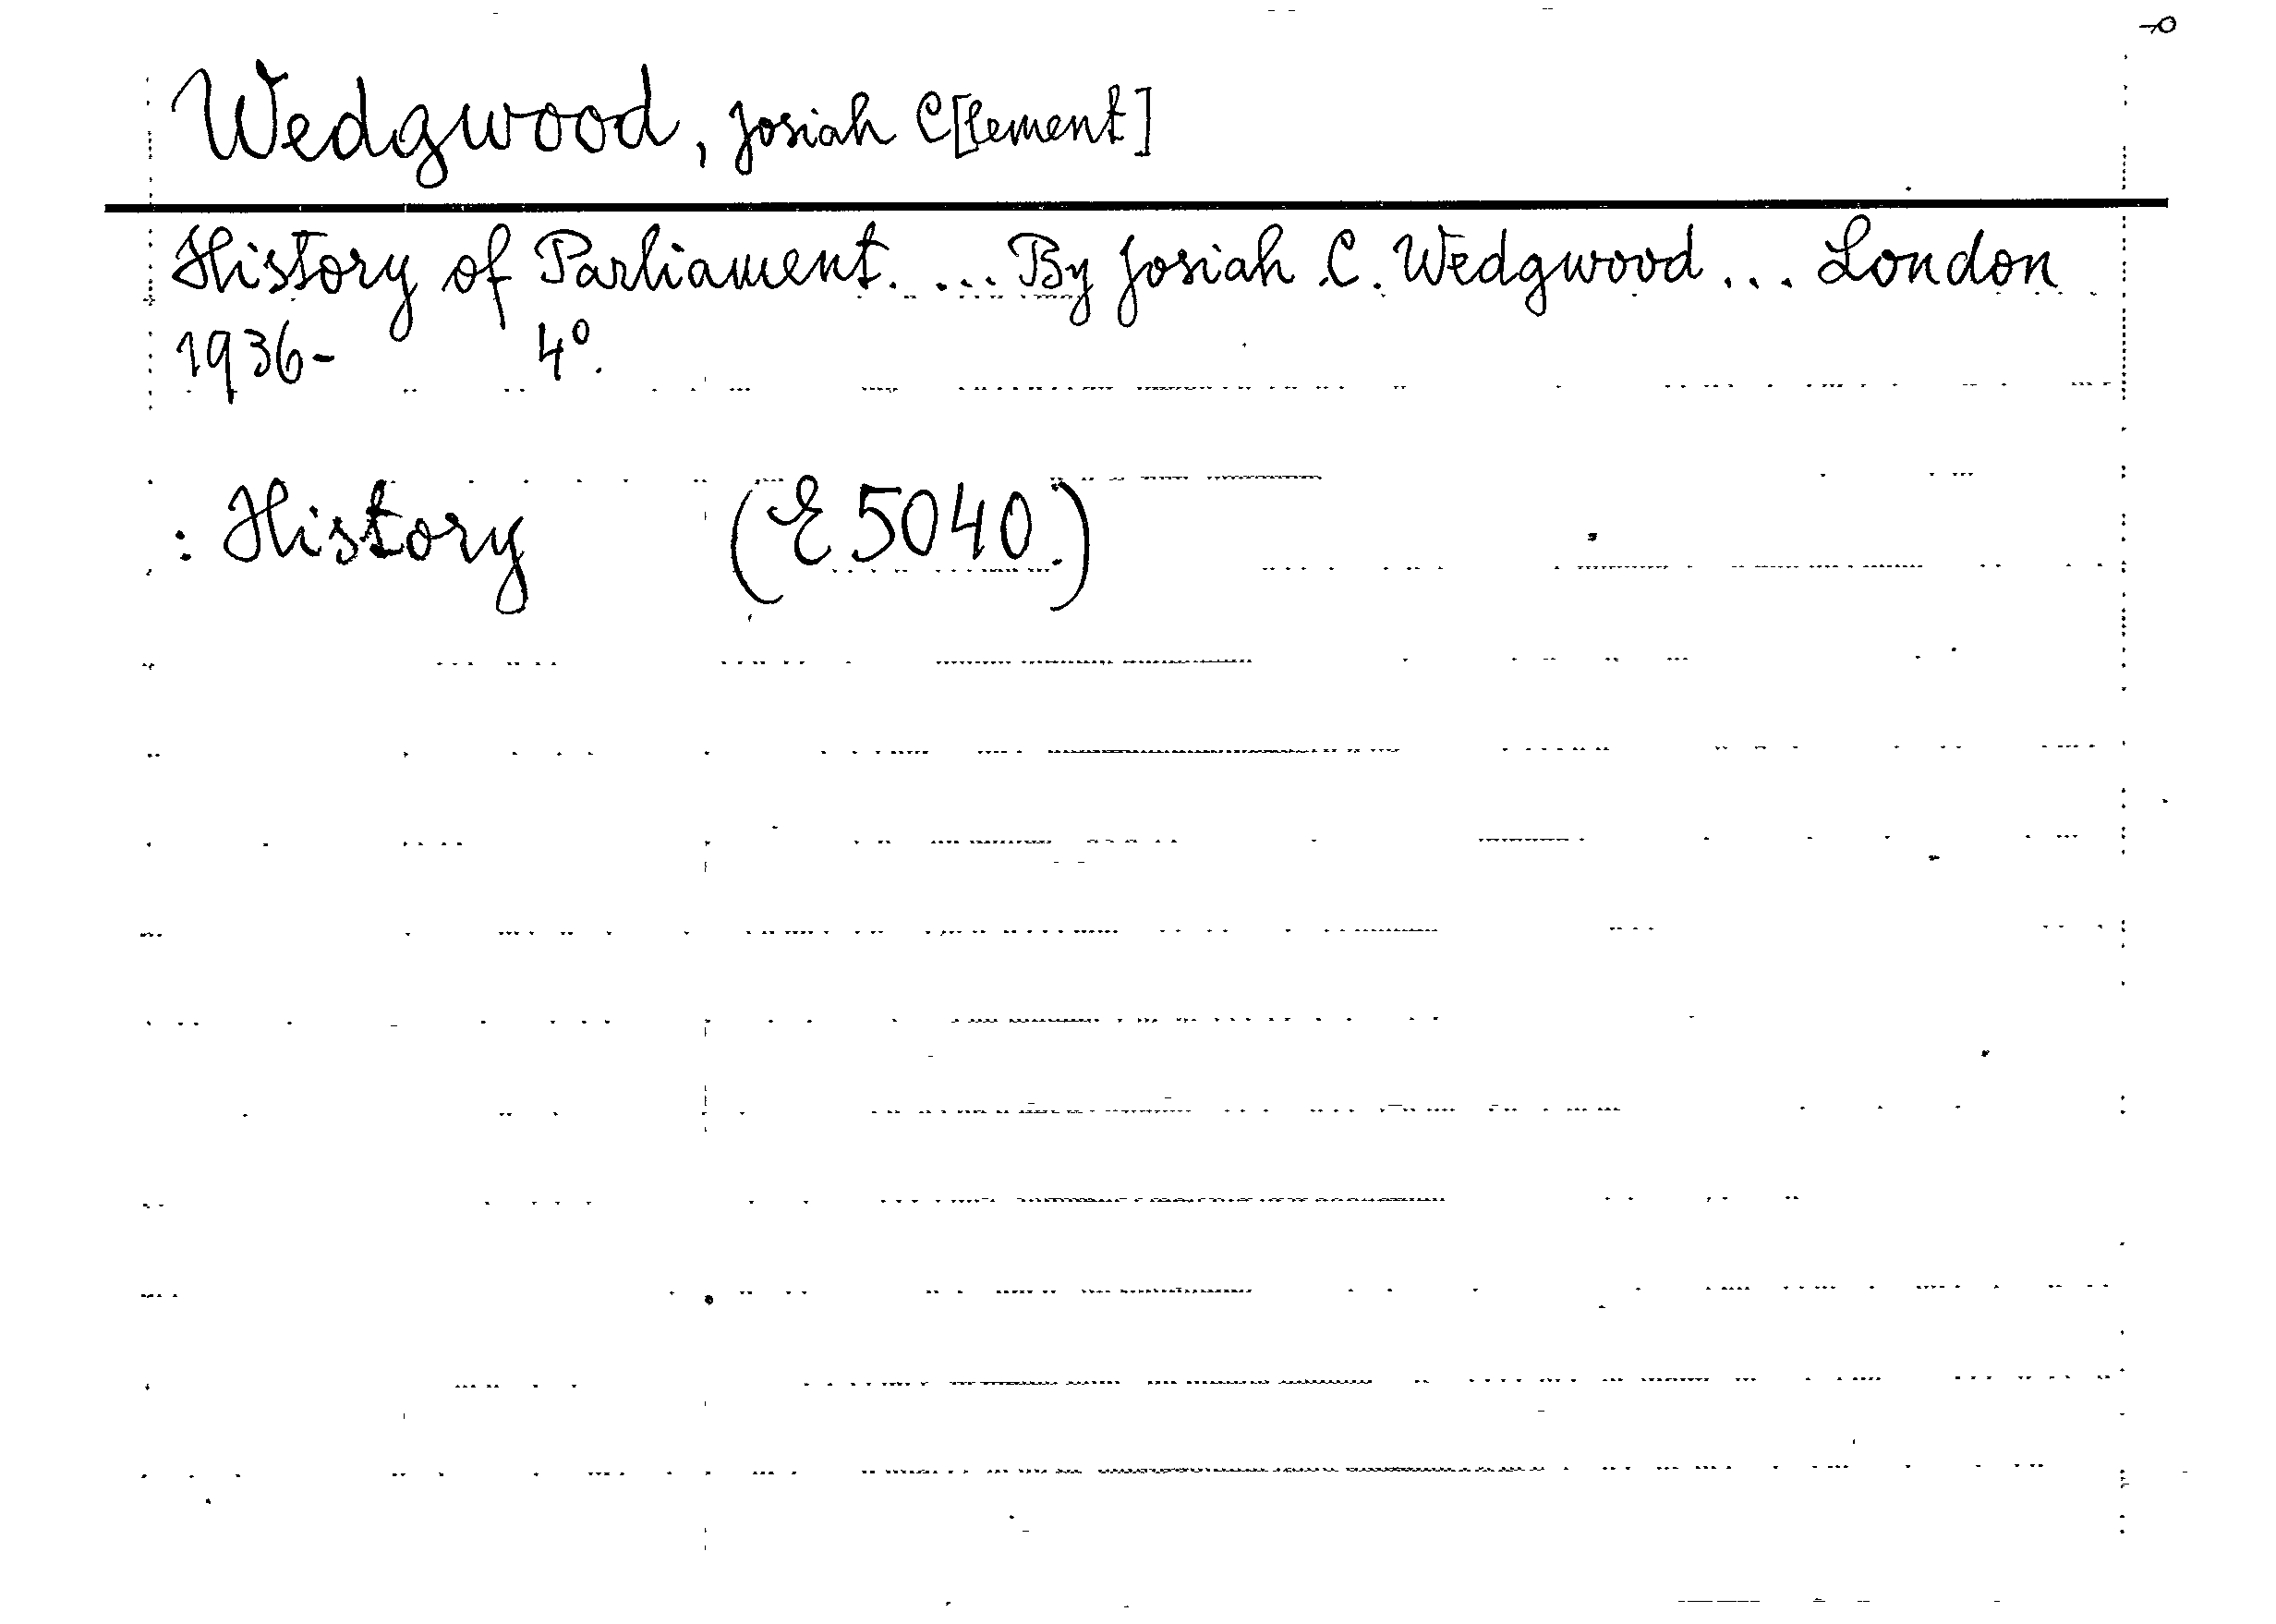 Wedgwood, Josiah C[lement]
History of Parliament. ... By Josiah C. Wedgwood ... London
1936- 4°.
: History (E 5040.)